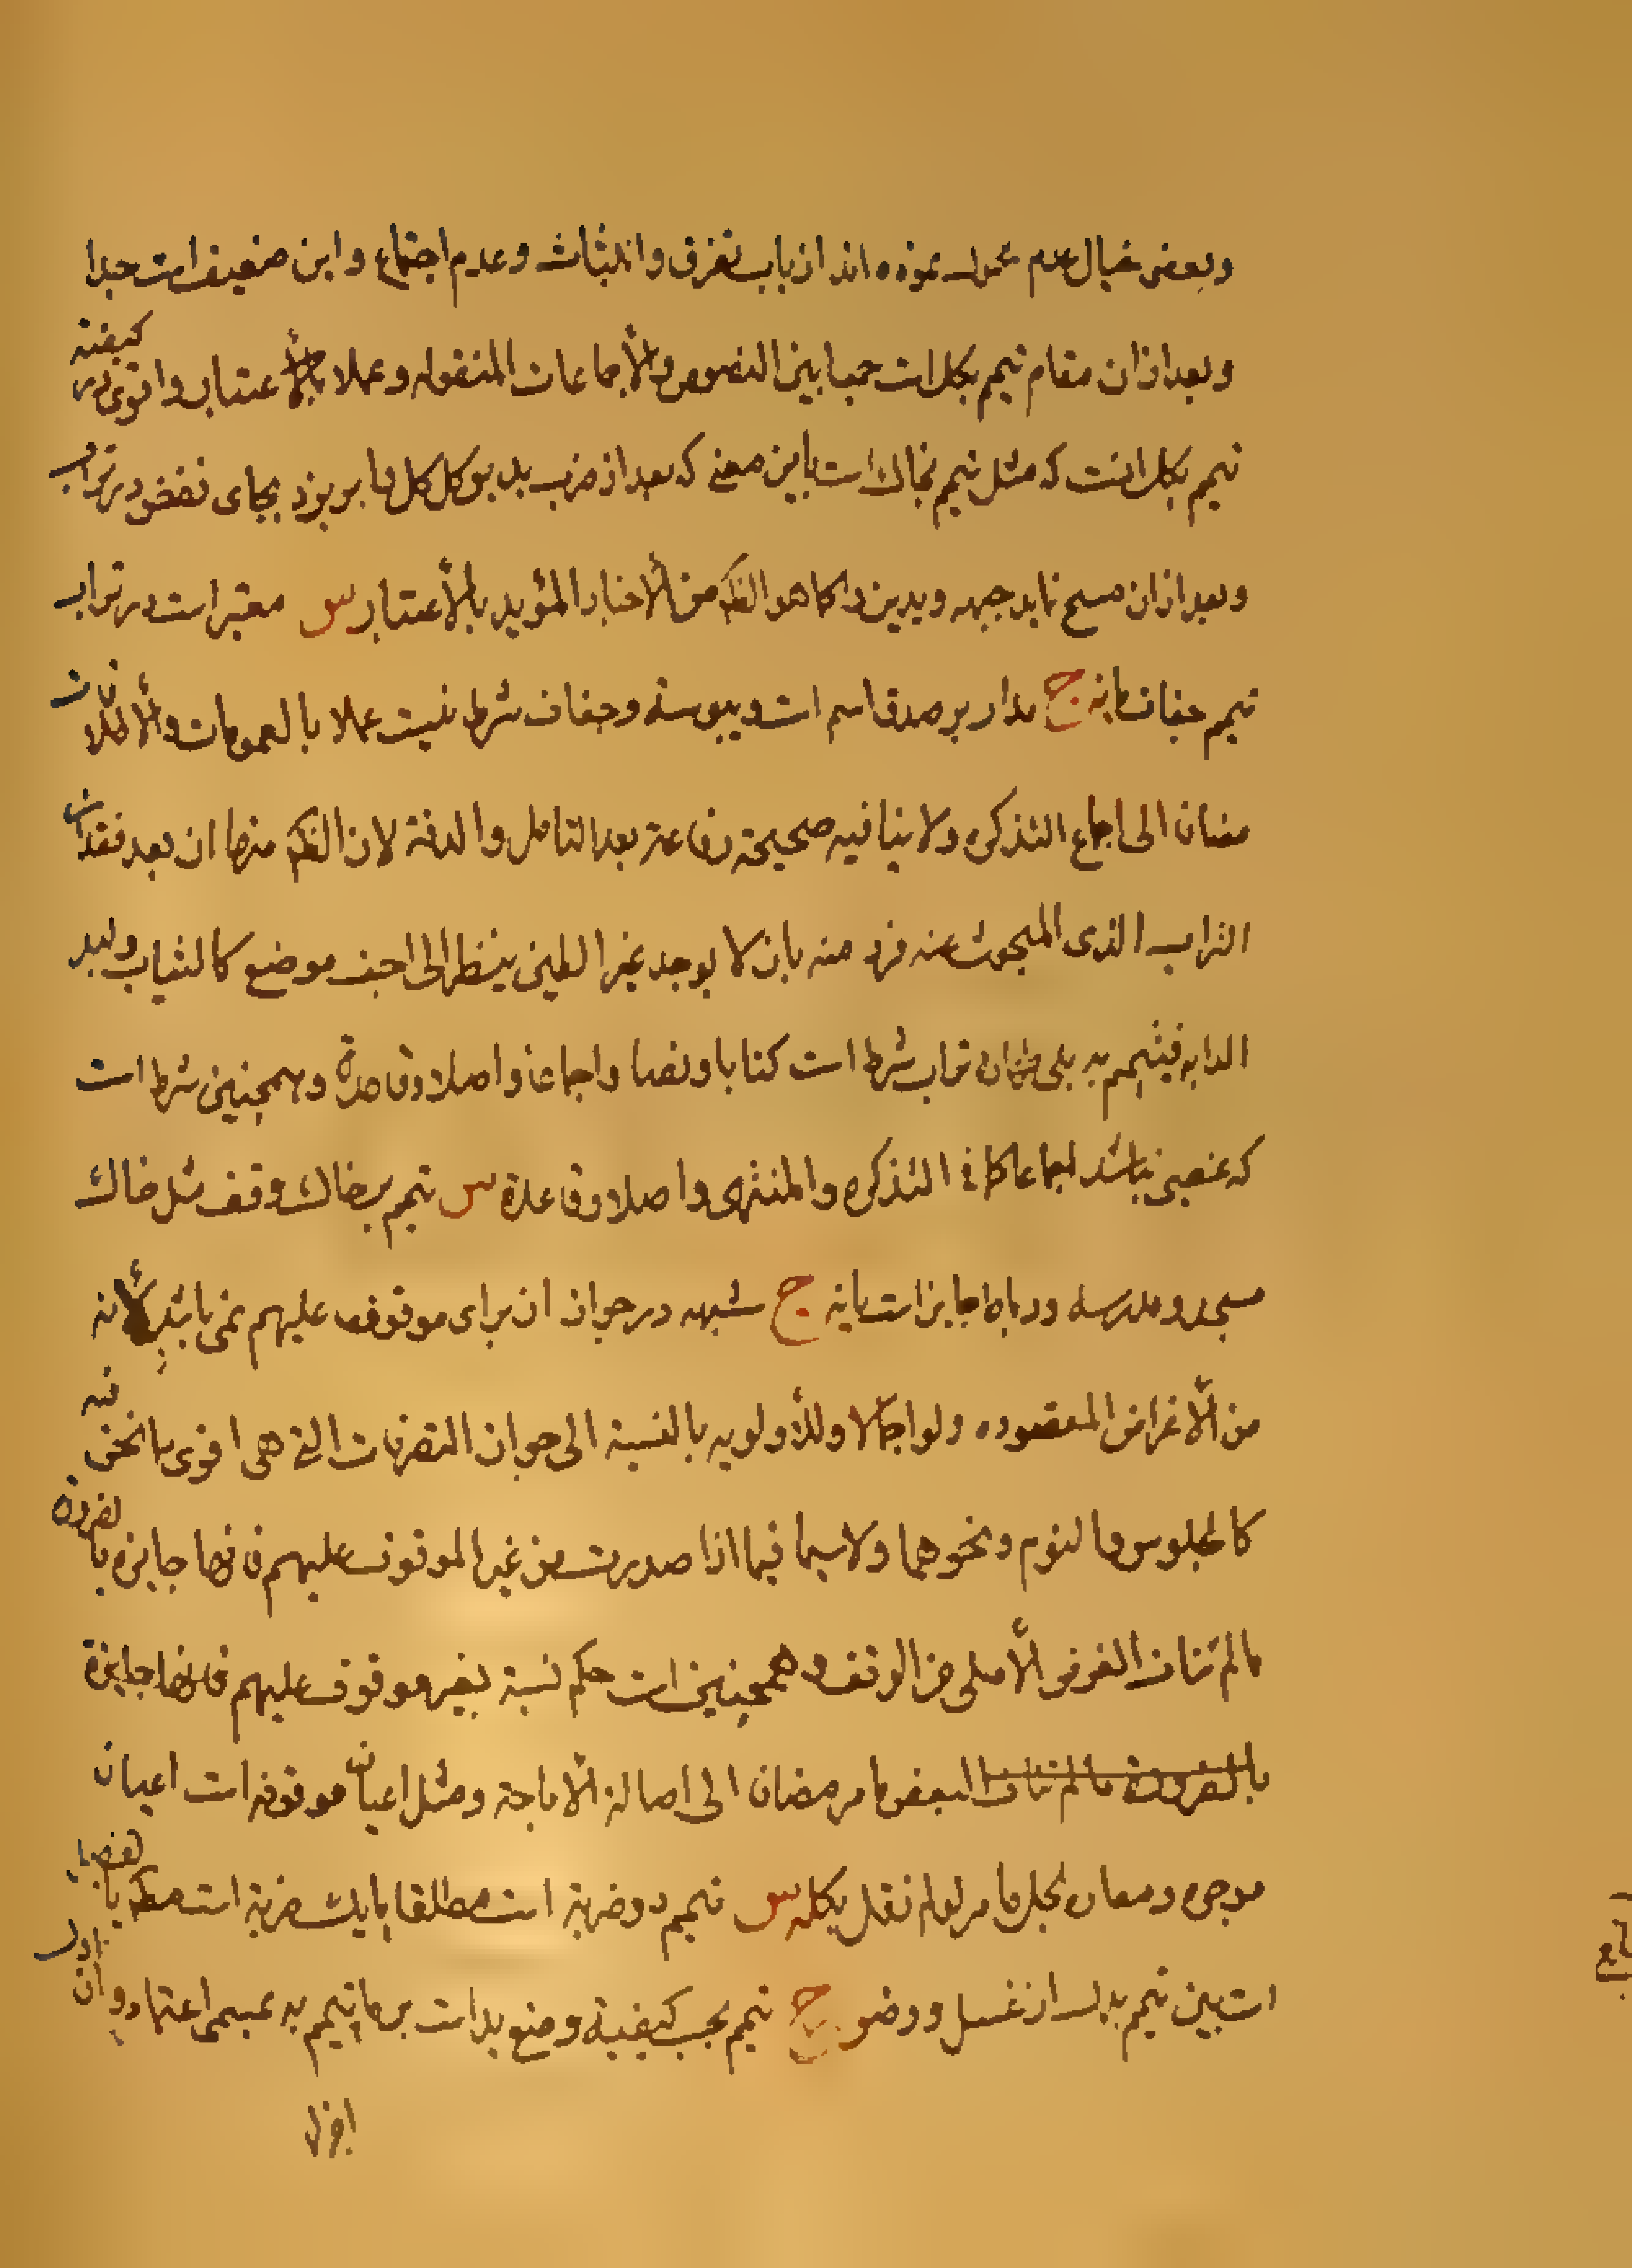 وبعضی خیال عدم محمول نموده اند از باب تفرق وانبثاث وعدم اجتماع واین ضعیف است جدا
وبعد از ان مقام تیمم بکل است جمعا بین النصوص والأجماعات المنقوله وعملا بالأعتبار واقوی در کیفیته
تیمم بکل انست که مثل تیمم بخاک است باین معنی که بعد از ضرب ید بر کل کل را بریزد بجای نفض در تراب
وبعد از ان مسح نماید جبهه ویدین را کما هو الظم من الأخبار المؤید بالأعتبار س معتبر است در تراب
تیمم جفاف یا نه ج مدار بر صدق اسم است ویبوسة وجفاف شرط نیست عملا بالعمومات والأطلاقات
مضافا الی اجماع التذکره ولا ینافیه صحیحة رفاعة بعد التامل والدقة لان الظم منها ان بعد فقدان
التراب الذی المبحوث عنه فرد منه بان لا یوجد غیر الطین ینظر الی اجف موضع کالثیاب ولبد
الدابه فیتیمم به بلی تراب شرط است کتابا ونصا واجماعا واصلا وقاعدة وهمچنین شرط است
که غصبی نباشد اجماعا کما فی التذکره والمنتهی واصلا وقاعدة س تیمم بر خاک وقف مثل خاک
مسجد ومدرسه ورباط جایز است یا نه ج شبهه در جواز ان برای موقوف علیهم نمی باشد لأنه
من الأغراض المقصوده ولو اجمالا وللأولویه بالنسبة الی جواز التصرفات التی هی اقوی مما نحن فیه
کالجلوس والنوم ونحوهما ولا سیما فیما اذا صدرت من غیر الموقوف علیهم فانها جایزه بالضرورة
ما لم تناف الغرض الأصلی من الوقف وهمچنین است حکم نسبة بغیر موقوف علیهم فانها جایزة
بالضرورة ما لم تناف البعض ما مر مضافا الی اصالة الأباحة ومثل اعیان موقوفه است اعیان
موجره ومعاره بجل ما مر لو لم نقل بکله س تیمم دو ضربة است مطلقا یا یک ضربة است مطم یا تفصیل
است بین تیمم بدل از غسل ووضو ج تیمم بحسب کیفیة وضع ید است بر ما یتیمم به بمسمی اعتماد وان اول